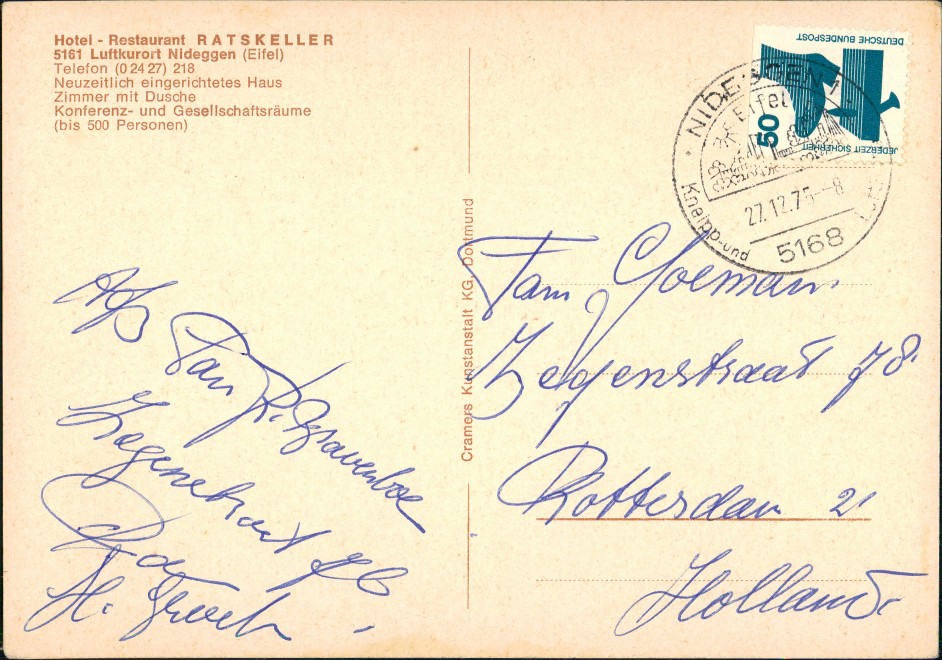 Hotel - Restaurant RATSKELLER
5161 Luftkurort Nideggen (Eifel)
Telefon (0 24 27) 218
Neuzeitlich eingerichtetes Haus
Zimmer mit Dusche
Konferenz- und Gesellschaftsräume
(bis 500 Personen)
Afs
Fam
R'dam
H. Groeten
Cramers Kunstanstalt KG, Dortmund
DEUTSCHE BUNDESPOST
JEDERZEIT SICHERHEIT
50
NIDEGGEN 1
Eifel
27.12.75-8
Kneipp-und
5168
Fam Yoeman.
Zegenstraat 78
Rotterdam 21
Holland.